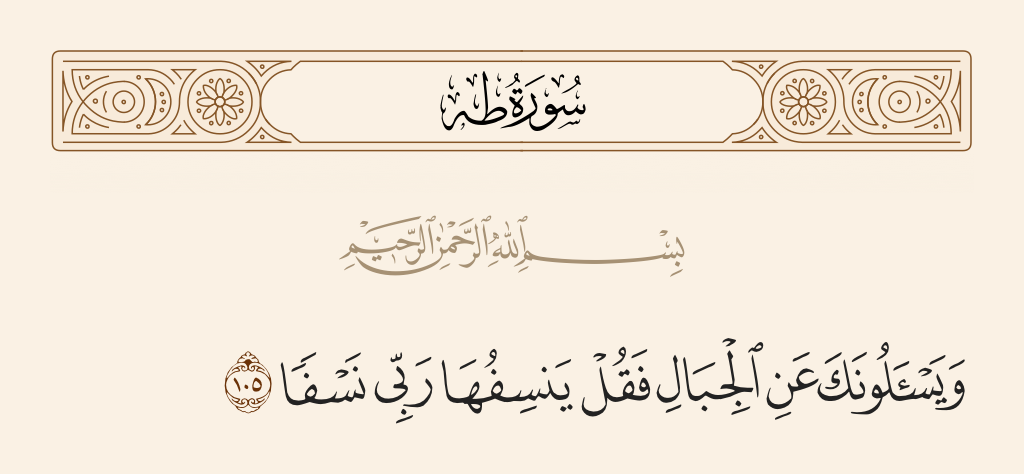 سُورَةُ طه
بِسْمِ ٱللَّهِ ٱلرَّحْمَٰنِ ٱلرَّحِيمِ
وَيَسْـَٔلُونَكَ عَنِ ٱلْجِبَالِ فَقُلْ يَنسِفُهَا رَبِّى نَسْفًا ١٠٥